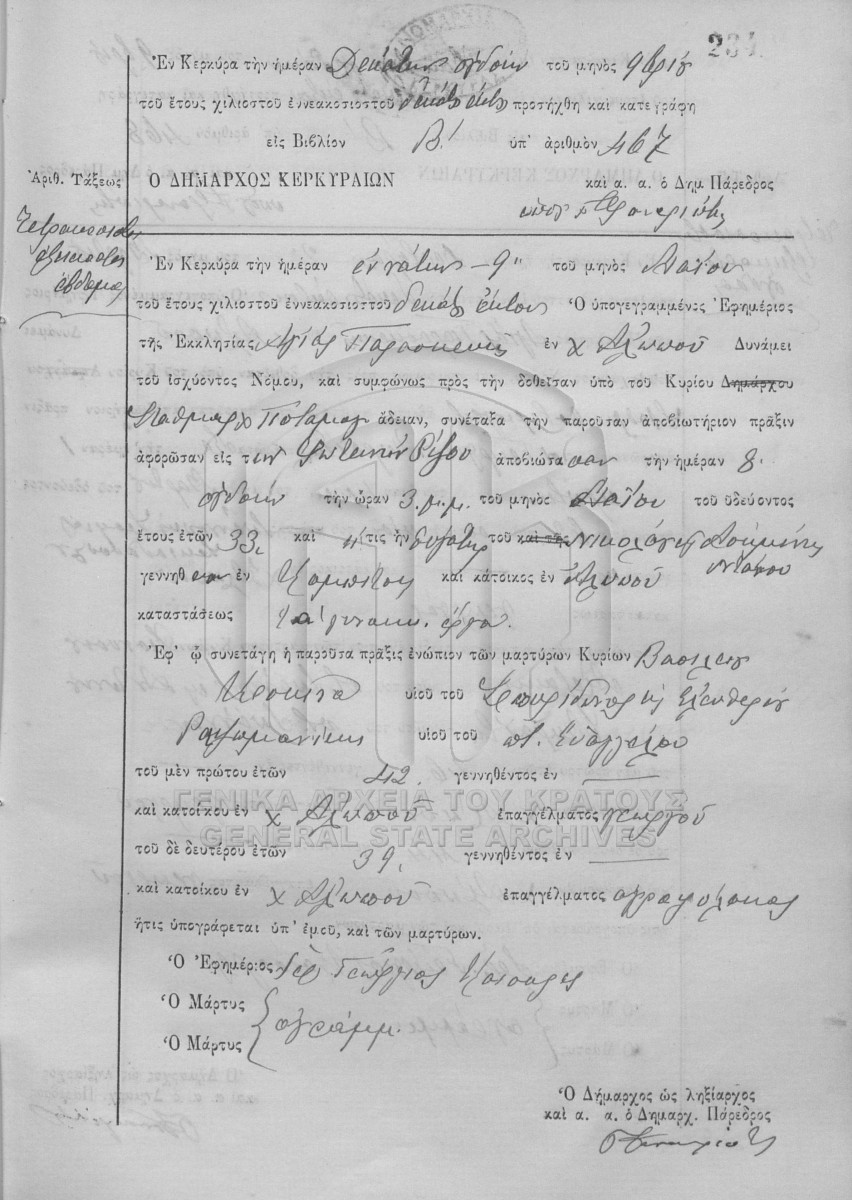 231
Ἐν Κερκύρᾳ τὴν ἡμέραν Δεκάτην ὀγδόην τοῦ μηνὸς 9βρίου
τοῦ ἔτους χιλιοστοῦ ἐννεακοσιοστοῦ δεκάτου ἕκτου προσήχθη καὶ κατεγράφη
εἰς Βιβλίον Β' ὑπ' ἀριθμὸν 467
Ἀριθ. Τάξεως Ο ΔΗΜΑΡΧΟΣ ΚΕΡΚΥΡΑΙΩΝ καὶ α. α. ὁ Δημ Πάρεδρος
Τετρακόσια
ἑξήκοντα
ἑπτά
Ἐν Κερκύρᾳ τὴν ἡμέραν ἐννάτην - 9" τοῦ μηνὸς Μαΐου
τοῦ ἔτους χιλιοστοῦ ἐννεακοσιοστοῦ δεκάτου ἕκτου Ὁ ὑπογεγραμμένος Ἐφημέριος
τῆς Ἐκκλησίας Ἁγίας Παρασκευῆς ἐν χ Ἀλυπποῦ Δυνάμει
τοῦ ἰσχύοντος Νόμου, καὶ συμφώνως πρὸς τὴν δοθεῖσαν ὑπὸ τοῦ Κυρίου Δημάρχου
Σταθμάρχου Ποταμοῦ ἄδειαν, συνέταξα τὴν παροῦσαν ἀποβιωτήριον πρᾶξιν
ἀφορῶσαν εἰς την Φωτεινὴν Ρίζου ἀποβιώσασαν τὴν ἡμέραν 8
ὀγδόην τὴν ὥραν 3 μ.μ. τοῦ μηνὸς Μαΐου τοῦ ὁδεύοντος
ἔτους ἐτῶν 33 καὶ ἥτις ἦν θυγάτηρ τοῦ καὶ τῆς Νικολάου
γεννηθεῖσαν ἐν καὶ κάτοικος ἐν Ἀλυπποῦ
καταστάσεως γυναικ. ἔργα.
Ἐφ' ᾧ συνετάγη ἡ παροῦσα πρᾶξις ἐνώπιον τῶν μαρτύρων Κυρίων Βασιλείου
υἱοῦ τοῦ Σπυρίδωνος κ Ἐλευθερίου
υἱοῦ τοῦ π. Εὐαγγέλου
τοῦ μὲν πρώτου ἐτῶν 42. γεννηθέντος ἐν —
καὶ κατοίκου ἐν χ Ἀλυπποῦ ἐπαγγέλματος γεωργοῦ
ΓΕΝΙΚΑ ΑΡΧΕΙΑ ΤΟΥ ΚΡΑΤΟΥΣ
GENERAL STATE ARCHIVES
τοῦ δὲ δευτέρου ἐτῶν 39. γεννηθέντος ἐν —
καὶ κατοίκου ἐν χ Ἀλυπποῦ ἐπαγγέλματος ἀγροφύλακος
ἥτις ὑπογράφεται ὑπ' ἐμοῦ, καὶ τῶν μαρτύρων.
Ὁ Ἐφημέριος Ἱερ Γεώργιος
Ὁ Μάρτυς
ἀγράμμ.
Ὁ Μάρτυς
Ὁ Δήμαρχος ὡς ληξίαρχος
καὶ α. α. ὁ Δημαρχ. Πάρεδρος